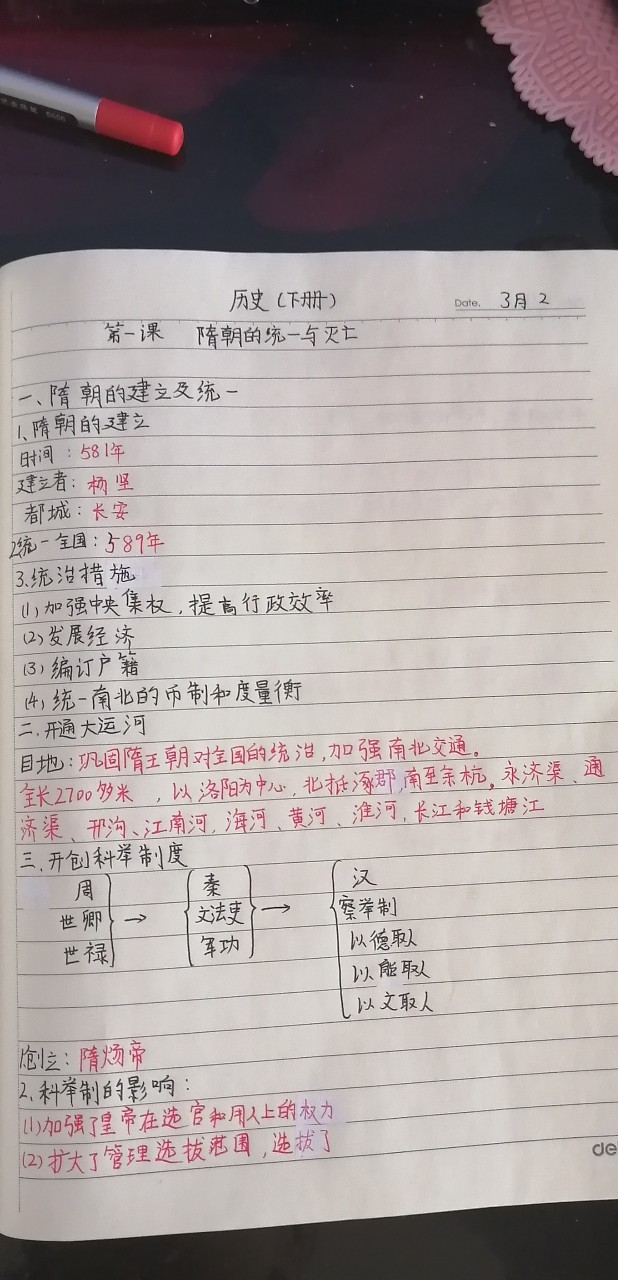 历史(下册)
Date. 3月2
第一课 隋朝的统一与灭亡
一、隋朝的建立及统一
1、隋朝的建立
时间:581年
建立者:杨坚
都城:长安
2统一全国:589年
3.统治措施
(1)加强中央集权,提高行政效率
(2)发展经济
(3)编订户籍
(4)统一南北的币制和度量衡
二.开通大运河
目地:巩固隋王朝对全国的统治,加强南北交通。
全长2700多米,以洛阳为中心,北抵涿郡,南至余杭。永济渠、通
济渠、邗沟、江南河,海河、黄河、淮河,长江和钱塘江
三.开创科举制度
周 → 秦 → 汉
世卿 文法吏 察举制
世禄 军功 以德取人
以能取人
以文取人
创立:隋炀帝
2、科举制的影响:
(1)加强了皇帝在选官和用人上的权力
(2)扩大了管理选拔范围,选拔了
de